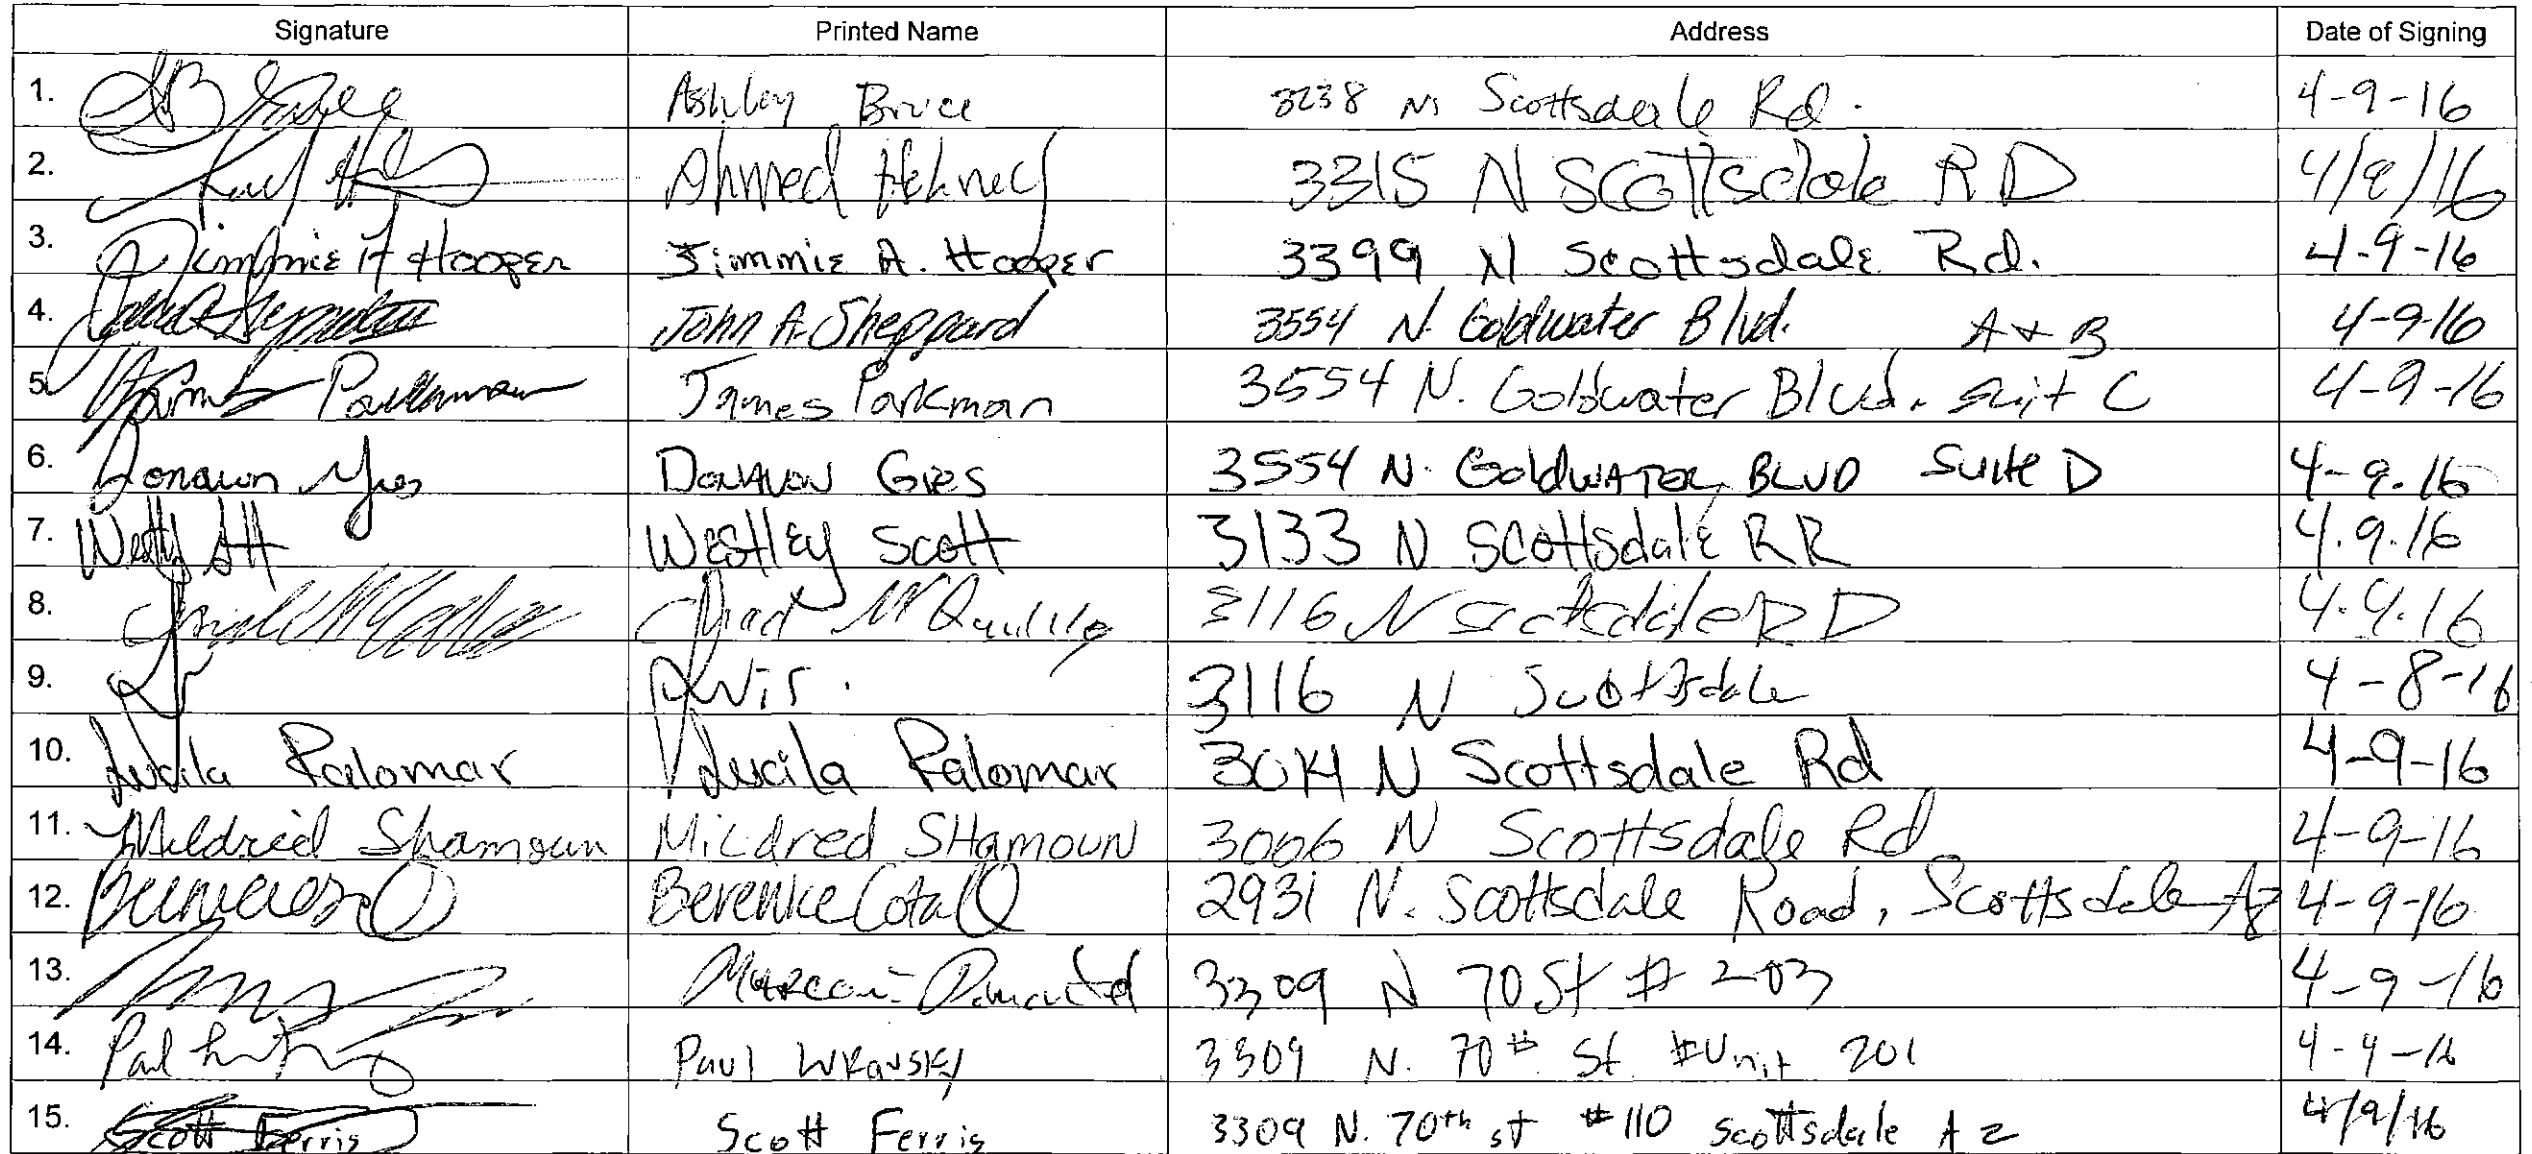 Signature Printed Name Address Date of Signing
1. Ashley Bruce 3238 N Scottsdale Rd. 4-9-16
2. Ahmed 3315 N Scottsdale RD 4/9/16
3. Jimmie A Hooper Jimmie A. Hooper 3399 N Scottsdale Rd. 4-9-16
4. John A. Sheppard 3554 N. Goldwater Blvd. A & B 4-9-16
5. James Parkman James Parkman 3554 N. Goldwater Blvd. suit C 4-9-16
6. Donavon Gies Donavon Gies 3554 N. Goldwater BLVD Suite D 4-9-16
7. Westley Scott 3133 N Scottsdale RR 4.9.16
8. 3116 N Scottsdale RD 4.9.16
9. 3116 N Scottsdale 4-8-16
10. Lucila Palomar Lucila Palomar N Scottsdale Rd 4-9-16
11. Mildred Shamoun Mildred SHamoun 3006 N Scottsdale Rd 4-9-16
12. Berenice Cota 2931 N. Scottsdale Road, Scottsdale Az 4-9-16
13. 3309 N 70 St # 203 4-9-16
14. Paul 3309 N. 70th St #Unit 201 4-9-16
15. Scott Ferris Scott Ferris 3309 N. 70th st #110 Scottsdale AZ 4/9/16